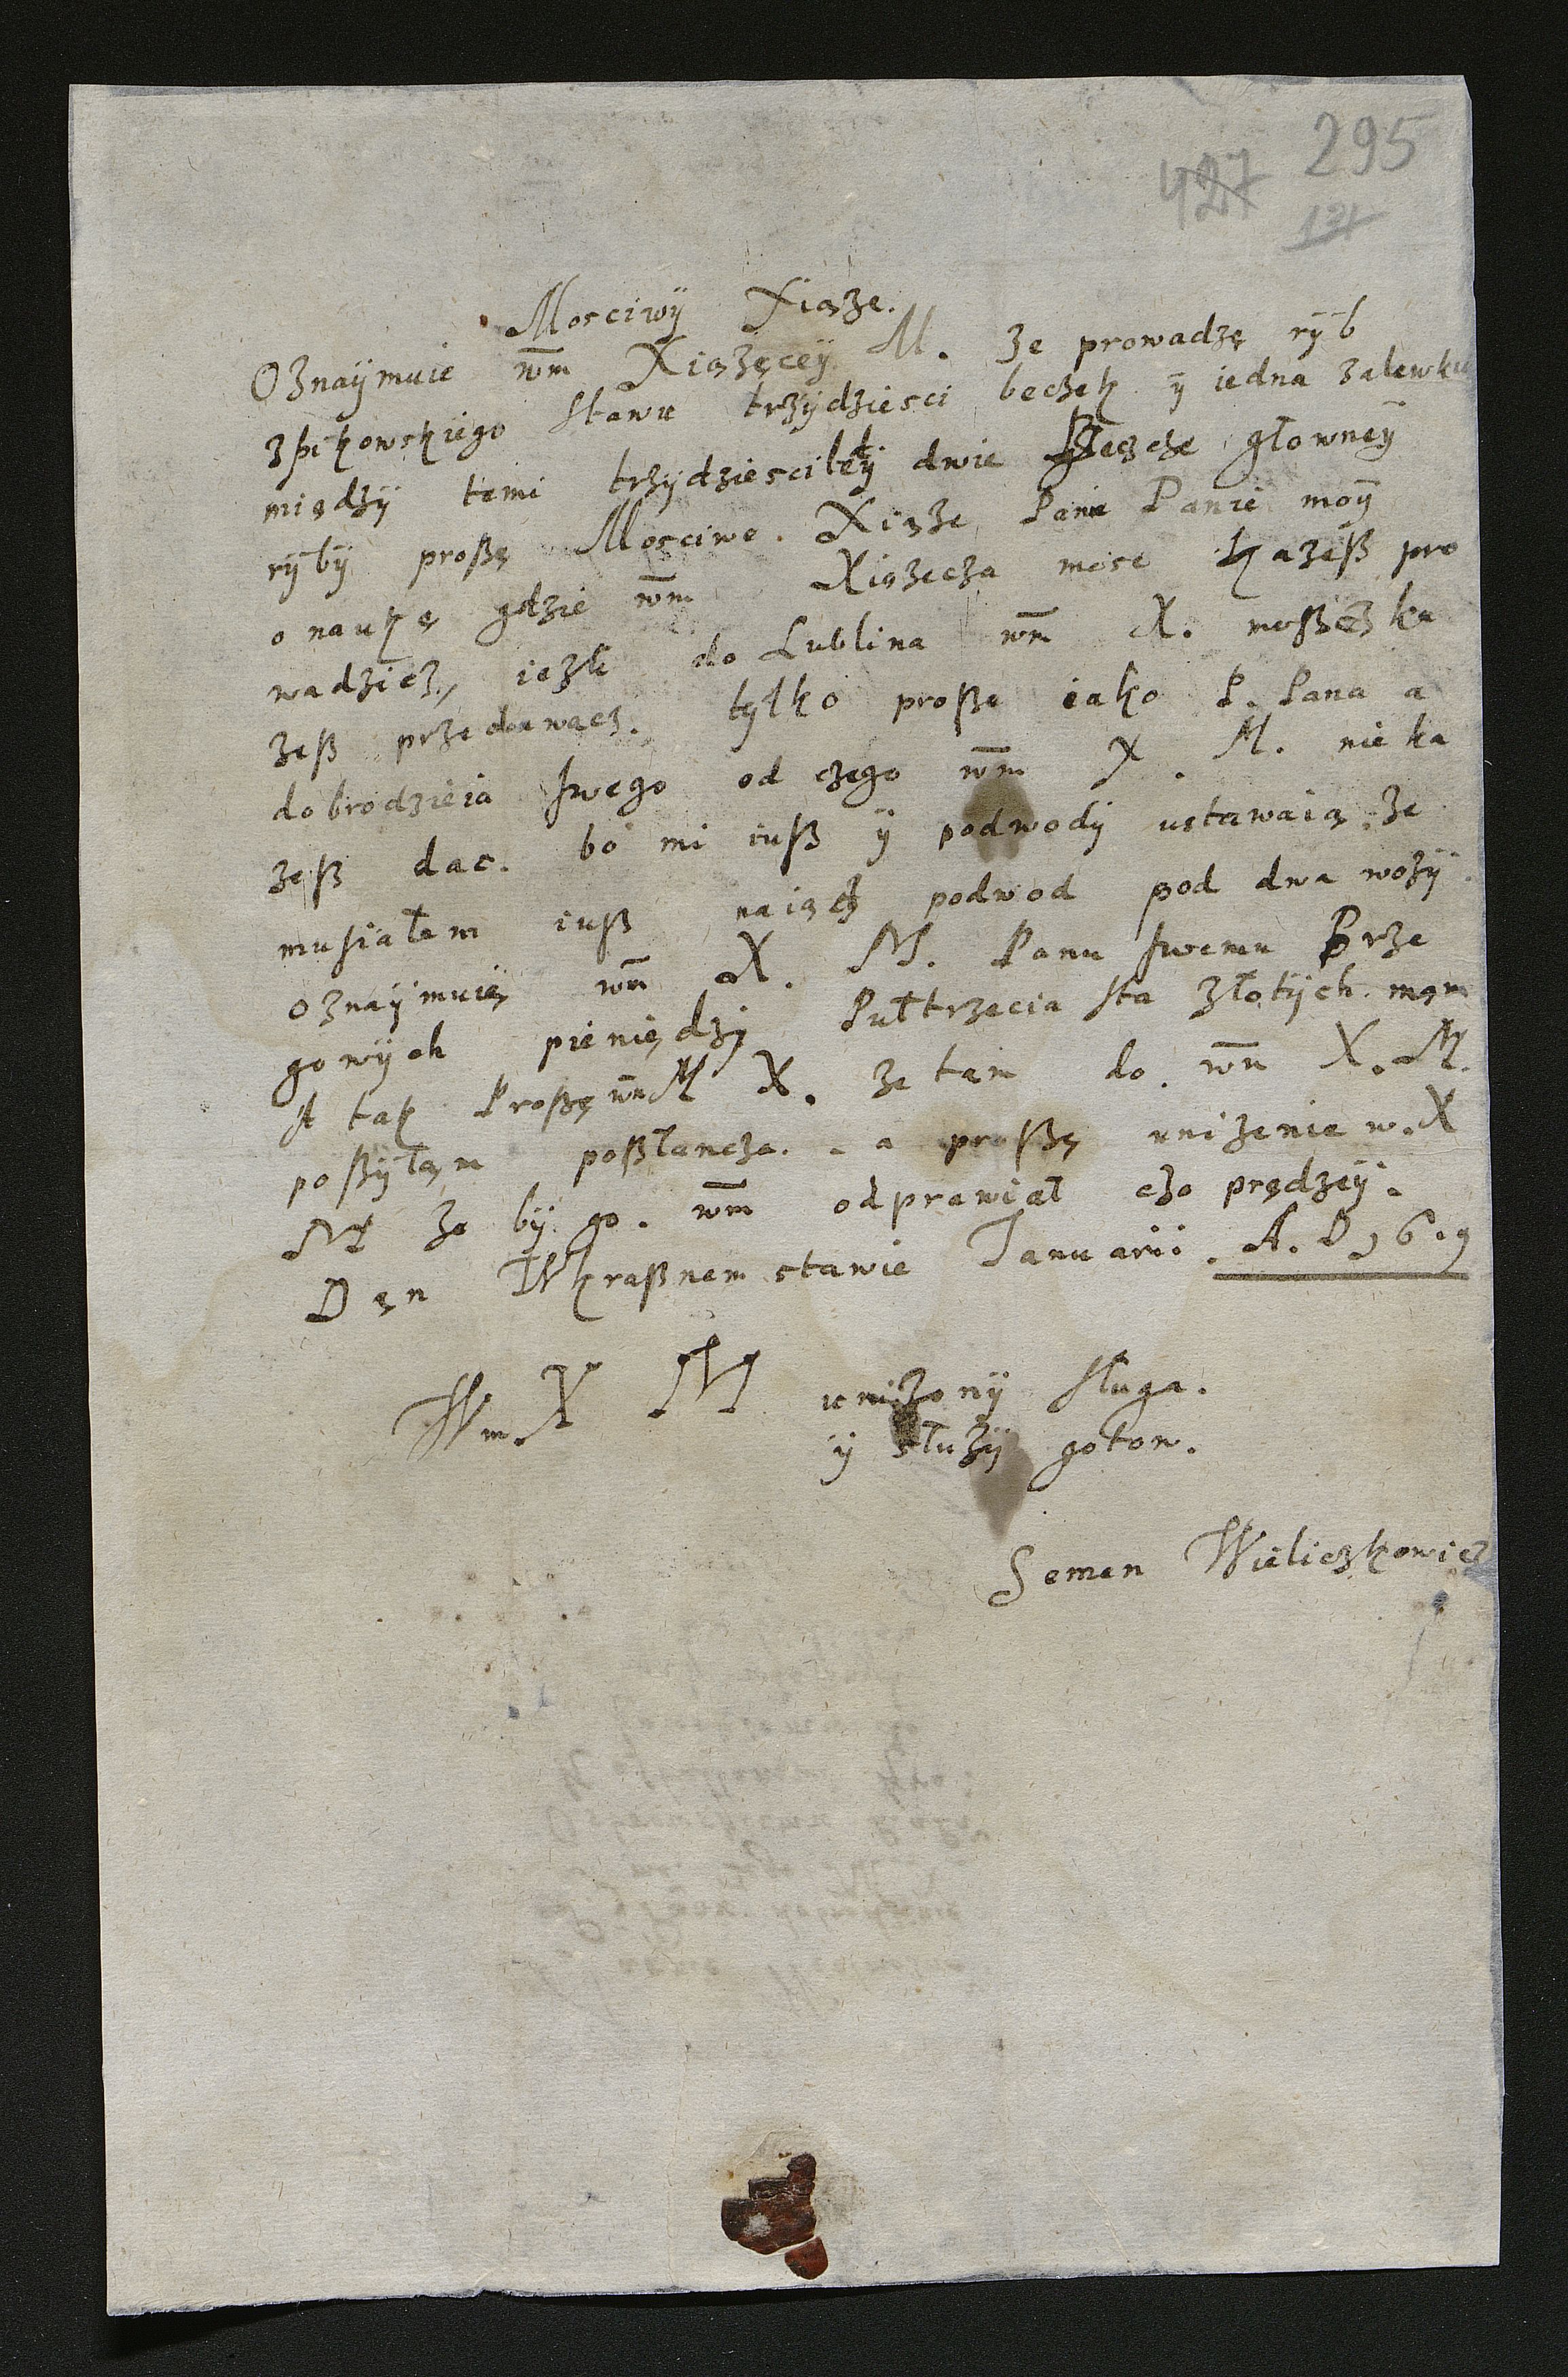 295
427
131
Mosciwÿ Xiąże.
Oznaÿmuie wm̄ Xiążęcеÿ M. że prowadzę rÿb
stawu trzÿdziesci beczek ÿ iedna zalewku
międzÿ temi trzÿdziescilą dwie głowneÿ
rÿbÿ proßę Mosciwe. Xiąże Panie Panie moÿ
o naukę gdzie wm̄ Xiążecza mosc każeß pro
wadzicz, ieżli do Lublina wm̄ X. moßcz ka
żeß przedawacz. tylko proßę iako P. Pana a
dobrodzieia swego od czego wm̄ X. M. nie ka
żeß dac. bo mi iuß ÿ podwodÿ ustawaią. że
musiałem iuß naiącz podwod pod dwa wozÿ.
oznaÿmuię wm̄ X. M. Panu swemu Brze
gowÿch pieniędzÿ Pułtrzecia sta złotÿch. mąm
A tak Proßę wm̄ M X. że tam do. wm̄ X. M.
poßÿłąm poßłancza. - a proßę uniżenie w. X
M że bÿ go. wm̄ odprawiał czo prędzeÿ.
Dąn Wkraßnem stawie Januarii. A. D 16.9
Wm. X M unizonÿ sługa.
ÿ służÿ gotow.
Semen Wieliczkowicz